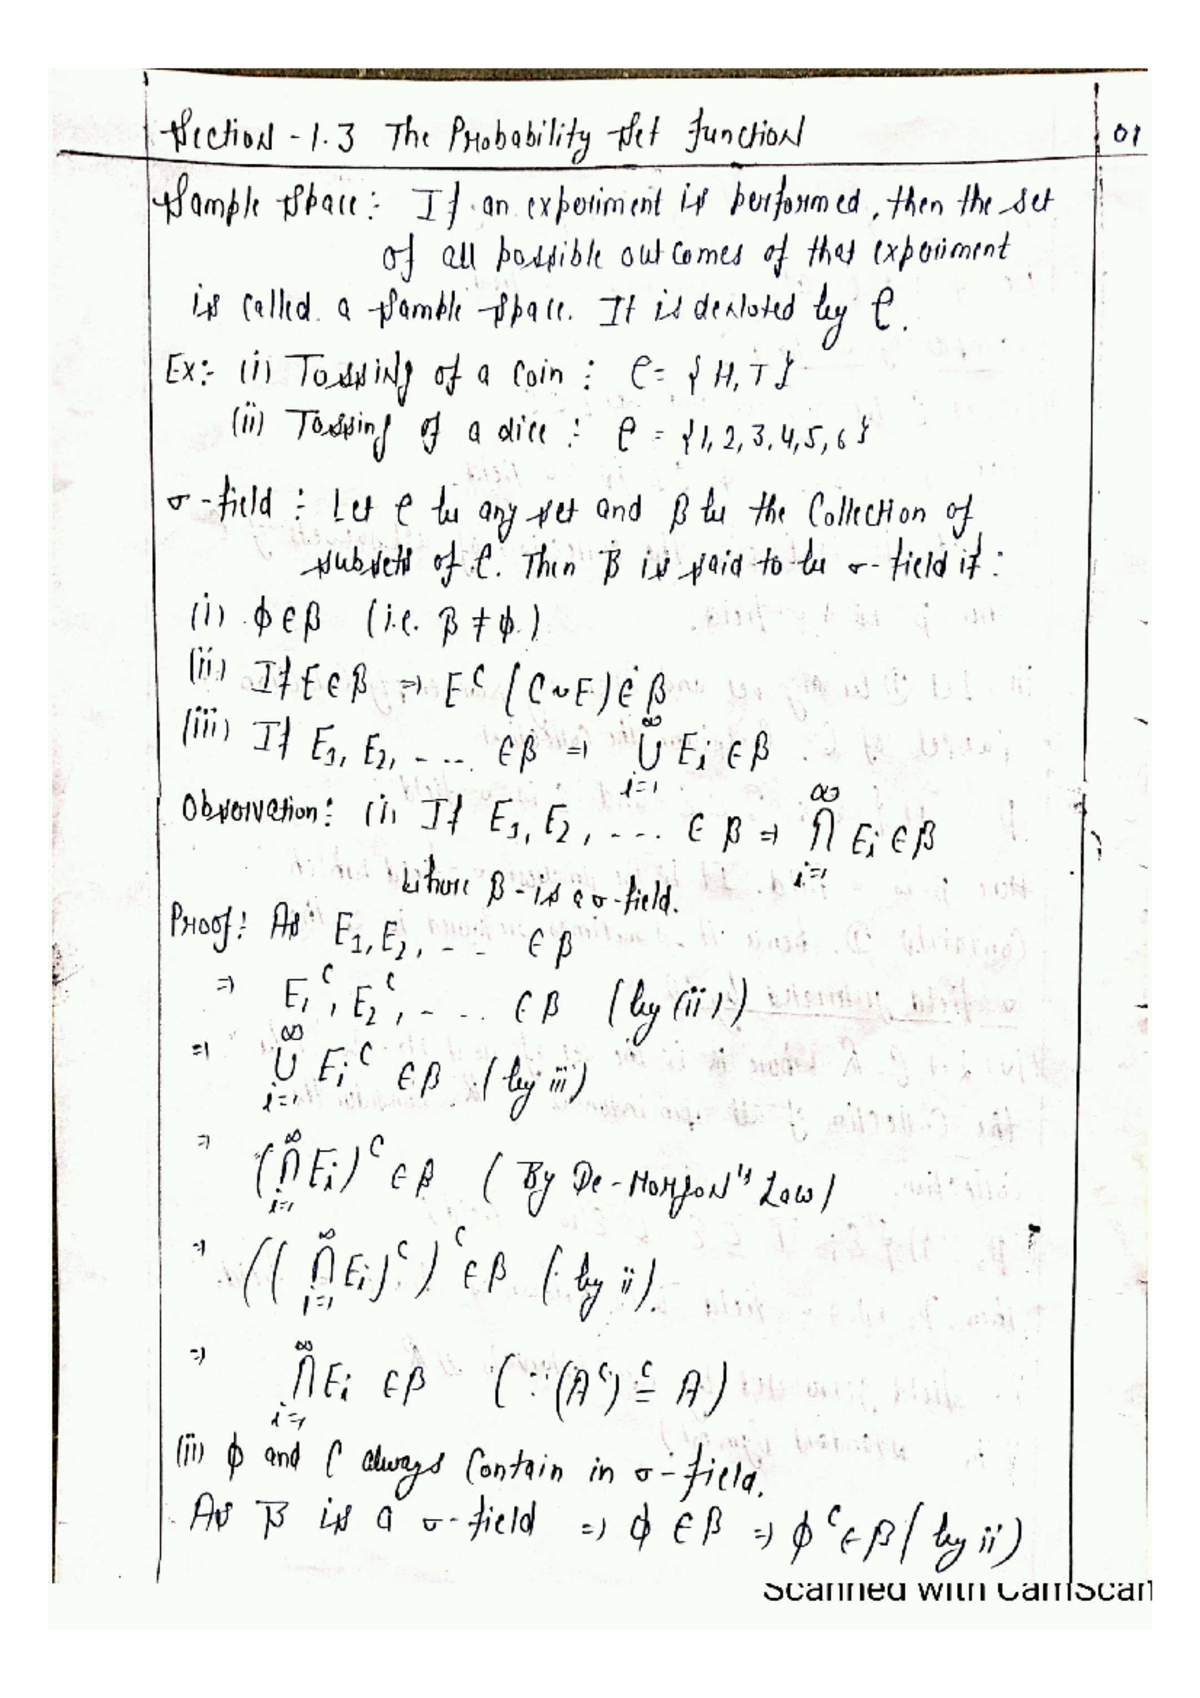 Section - 1.3 The Probability Set Function 01
Sample Space :- If an experiment is performed, then the set
of all possible outcomes of that experiment
is called a Sample Space. It is denoted by C.
Ex:- (i) Tossing of a coin : C = {H, T}
(ii) Tossing of a dice :- C = {1, 2, 3, 4, 5, 6}
σ-field :- Let C be any set and β be the Collection of
subsets of C. Then β is said to be σ-field if :
(i) ϕ ∈ β (i.e. β ≠ ϕ.)
(ii) If E ∈ β ⇒ E^c (C ~ E) ∈ β
(iii) If E₁, E₂, ---- ∈ β ⇒ ∞∪i=1 Ei ∈ β.
Observation :- (i) If E₁, E₂, ---- ∈ β ⇒ ∞∩i=1 Ei ∈ β
where β - is a σ-field.
Proof :- As E₁, E₂, --- ∈ β
⇒ E₁^c, E₂^c, ---- ∈ β (by (ii))
⇒ ∞∪i=1 Ei^c ∈ β (by iii)
⇒ (∞∩i=1 Ei)^c ∈ β (By De-Morgon's Law)
⇒ ((∞∩i=1 Ei)^c)^c ∈ β (by ii).
⇒ ∞∩i=1 Ei ∈ β (∵ (A^c)^c = A)
(ii) ϕ and C always Contain in σ-field.
As β is a σ-field ⇒ ϕ ∈ β ⇒ ϕ^c ∈ β (by ii)
Scanned with CamScan